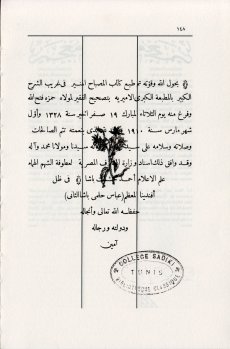 ١٤٨
بحول الله وقوته تم طبع كتاب المصباح المنير فى غريب الشرح
الكبير بالمطبعة الكبرى الاميرية بتصحيح الفقير لمولاه حمزه فتح الله
وفرغ منه يوم الثلاثاء المبارك ١٩ صفر الخير سنة ١٣٢٨ وأول
شهر مارس سنة ١٩١٠ بنعمته تتم الصالحات
وصلاته وسلامه على سيدنا ومولانا محمد وآله
وقد وافق ذلك اسناد وزارة المصرية لعطوفة الشهم الهمام
علم الاعلام أحمد باشا فى ظل
أفندينا المعظم (عباس حلمى باشا الثانى)
حفظه الله تعالى وأنجاله
ودولته ورجاله
آمين
COLLEGE SADIKI
TUNIS
BIBLIOTHEQUE CLASSIQUE